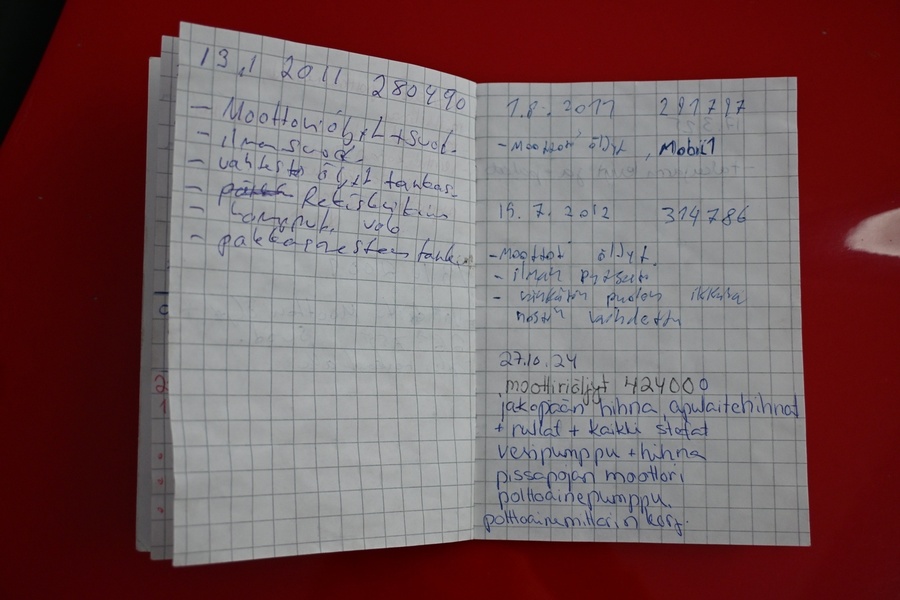 13.1 2011 280490
- Moottoriöljyt + suod.
- ilmansuod.
- vaihteisto öljyt tarkas.
- Rekisterikilv
- valo
- pakkasnesteen tark.
1.8. 2011 291797
- Moottori öljyt, Mobil1
15. 7. 2012 314786
- Moottori öljyt.
- ilman
- vänkärin puolen ikkuna
nostin vaihdettu
27.10.24
moottoriöljyt 424000
jakopään hihna, apulaitehihnat
+ rullat + kaikki stefat
vesipumppu + hihna
pissapojan moottori
polttoainepumppu
polttoainemittarin korj.